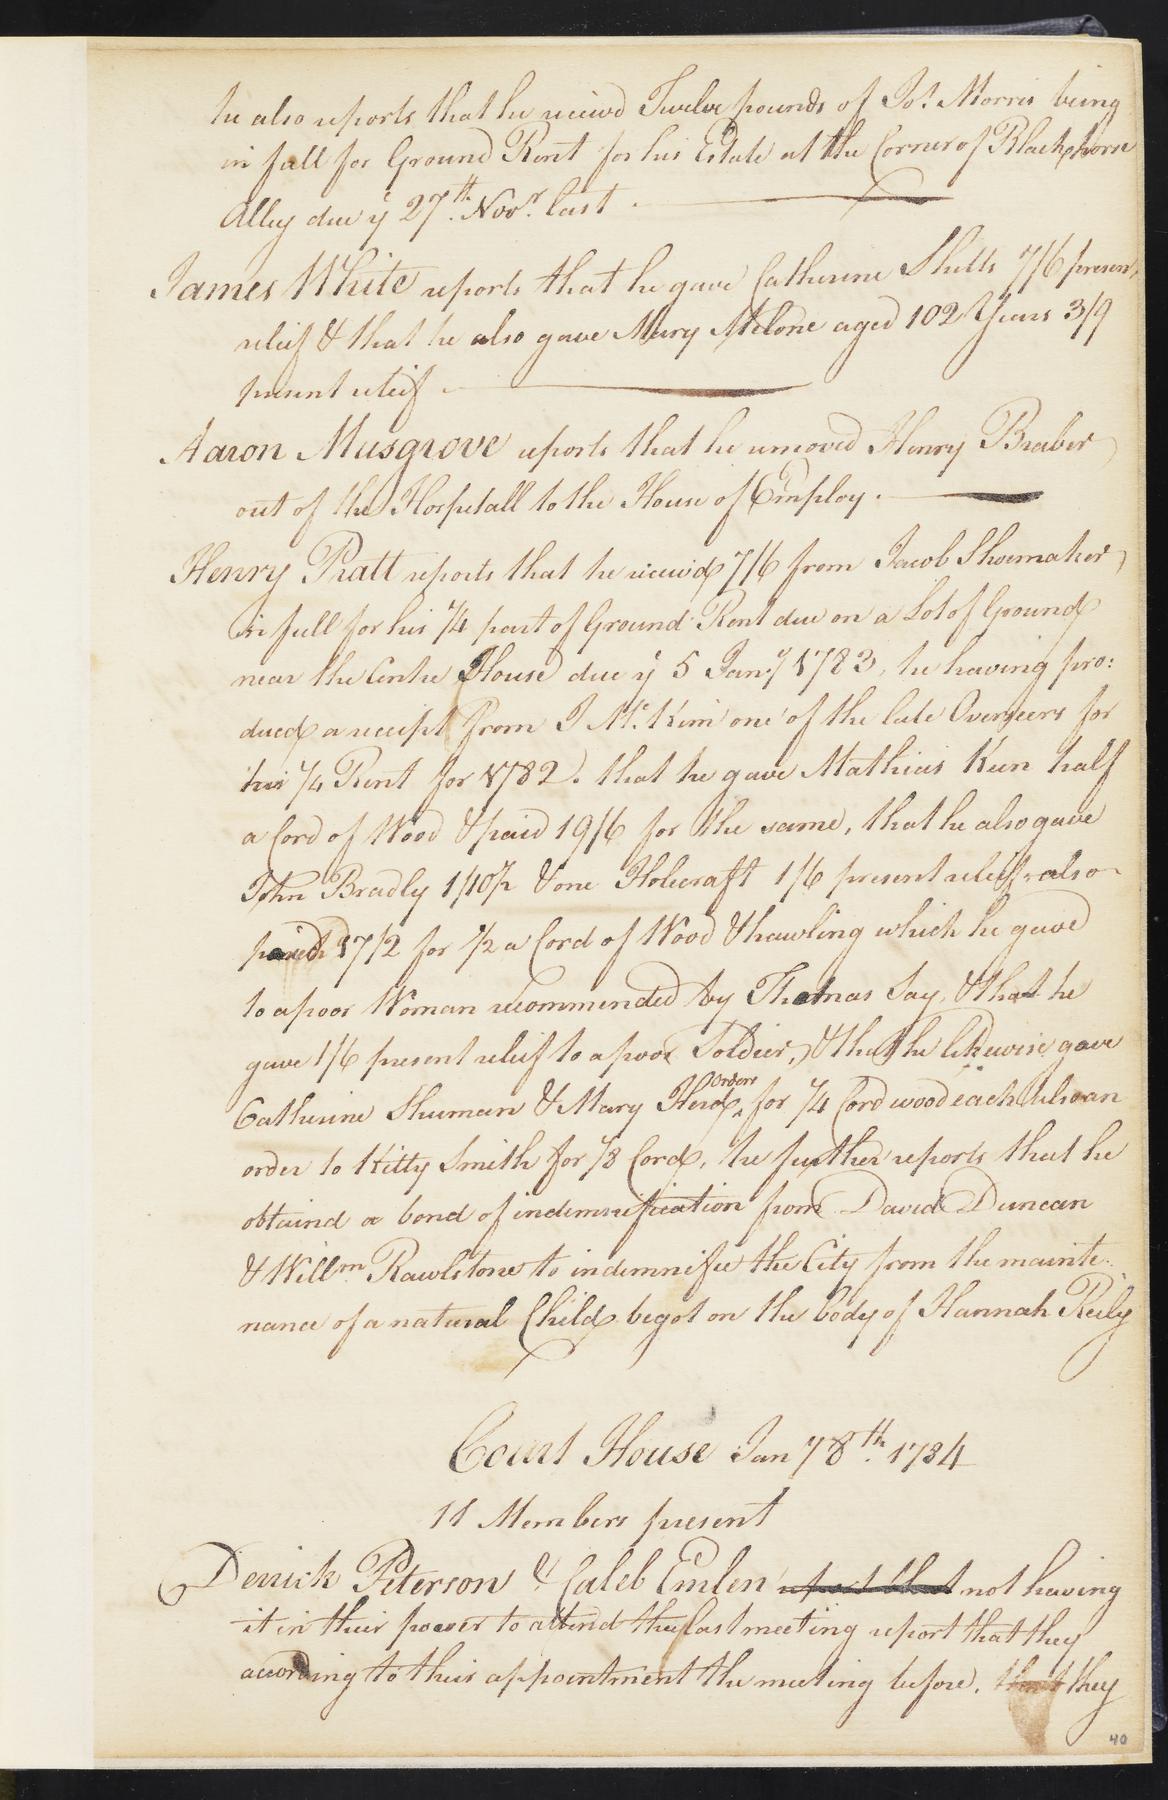 he also reports that he receivd Twelve pounds of Jos. Morris being
in full for Ground Rent for his Estate at the Corner of Blackhorse
Alley due ye 27th. Novr. last.
James White reports that he gave Catherine Shitts 7/6 present
releif & that he also gave Mary Melone aged 102 Years 3/9
present releif
Aaron Musgrove reports that he removed Henry Braber
out of the Hospitall to the House of Employ.
Henry Pratt reports that he receivd 7/6 from Jacob Shoemaker
in full for his 1/4 part of Ground Rent due on a Lot of Ground
near the Centre House due ye 5 Jany 1783, he having pro:
duced a receipt from J Mc. Kim one of the late Overseers for
his 1/4 Rent for 1782. that he gave Mathias Keen half
a Cord of Wood & paid 19/6 for the same, that he also gave
John Bradly 1/10 1/2 & one Holicraft 1/6 present releif, also
paid 17/2 for 1/2 a Cord of Wood & hawling which he gave
to a poor Woman recommended by Thomas Say, & that he
gave 1/6 present releif to a poor Soldier, & that he likewise gave
Catherine Shuman & Mary Herd, Orders for 1/4 Cord wood each also an
order to Kitty Smith for 1/8 Cord, he further reports that he
obtaind a bond of indemnification from David Duncan
& Willm Rawlstone to indemnifie the City from the mainte:
nance of a natural Child begot on the body of Hannah Reily
Court House Jany 8th. 1784
11 Members present
Derrick Peterson & Caleb Emlen report that not having
it in their power to attend the last meeting report that they
according to their appointment the meeting before, that they
40